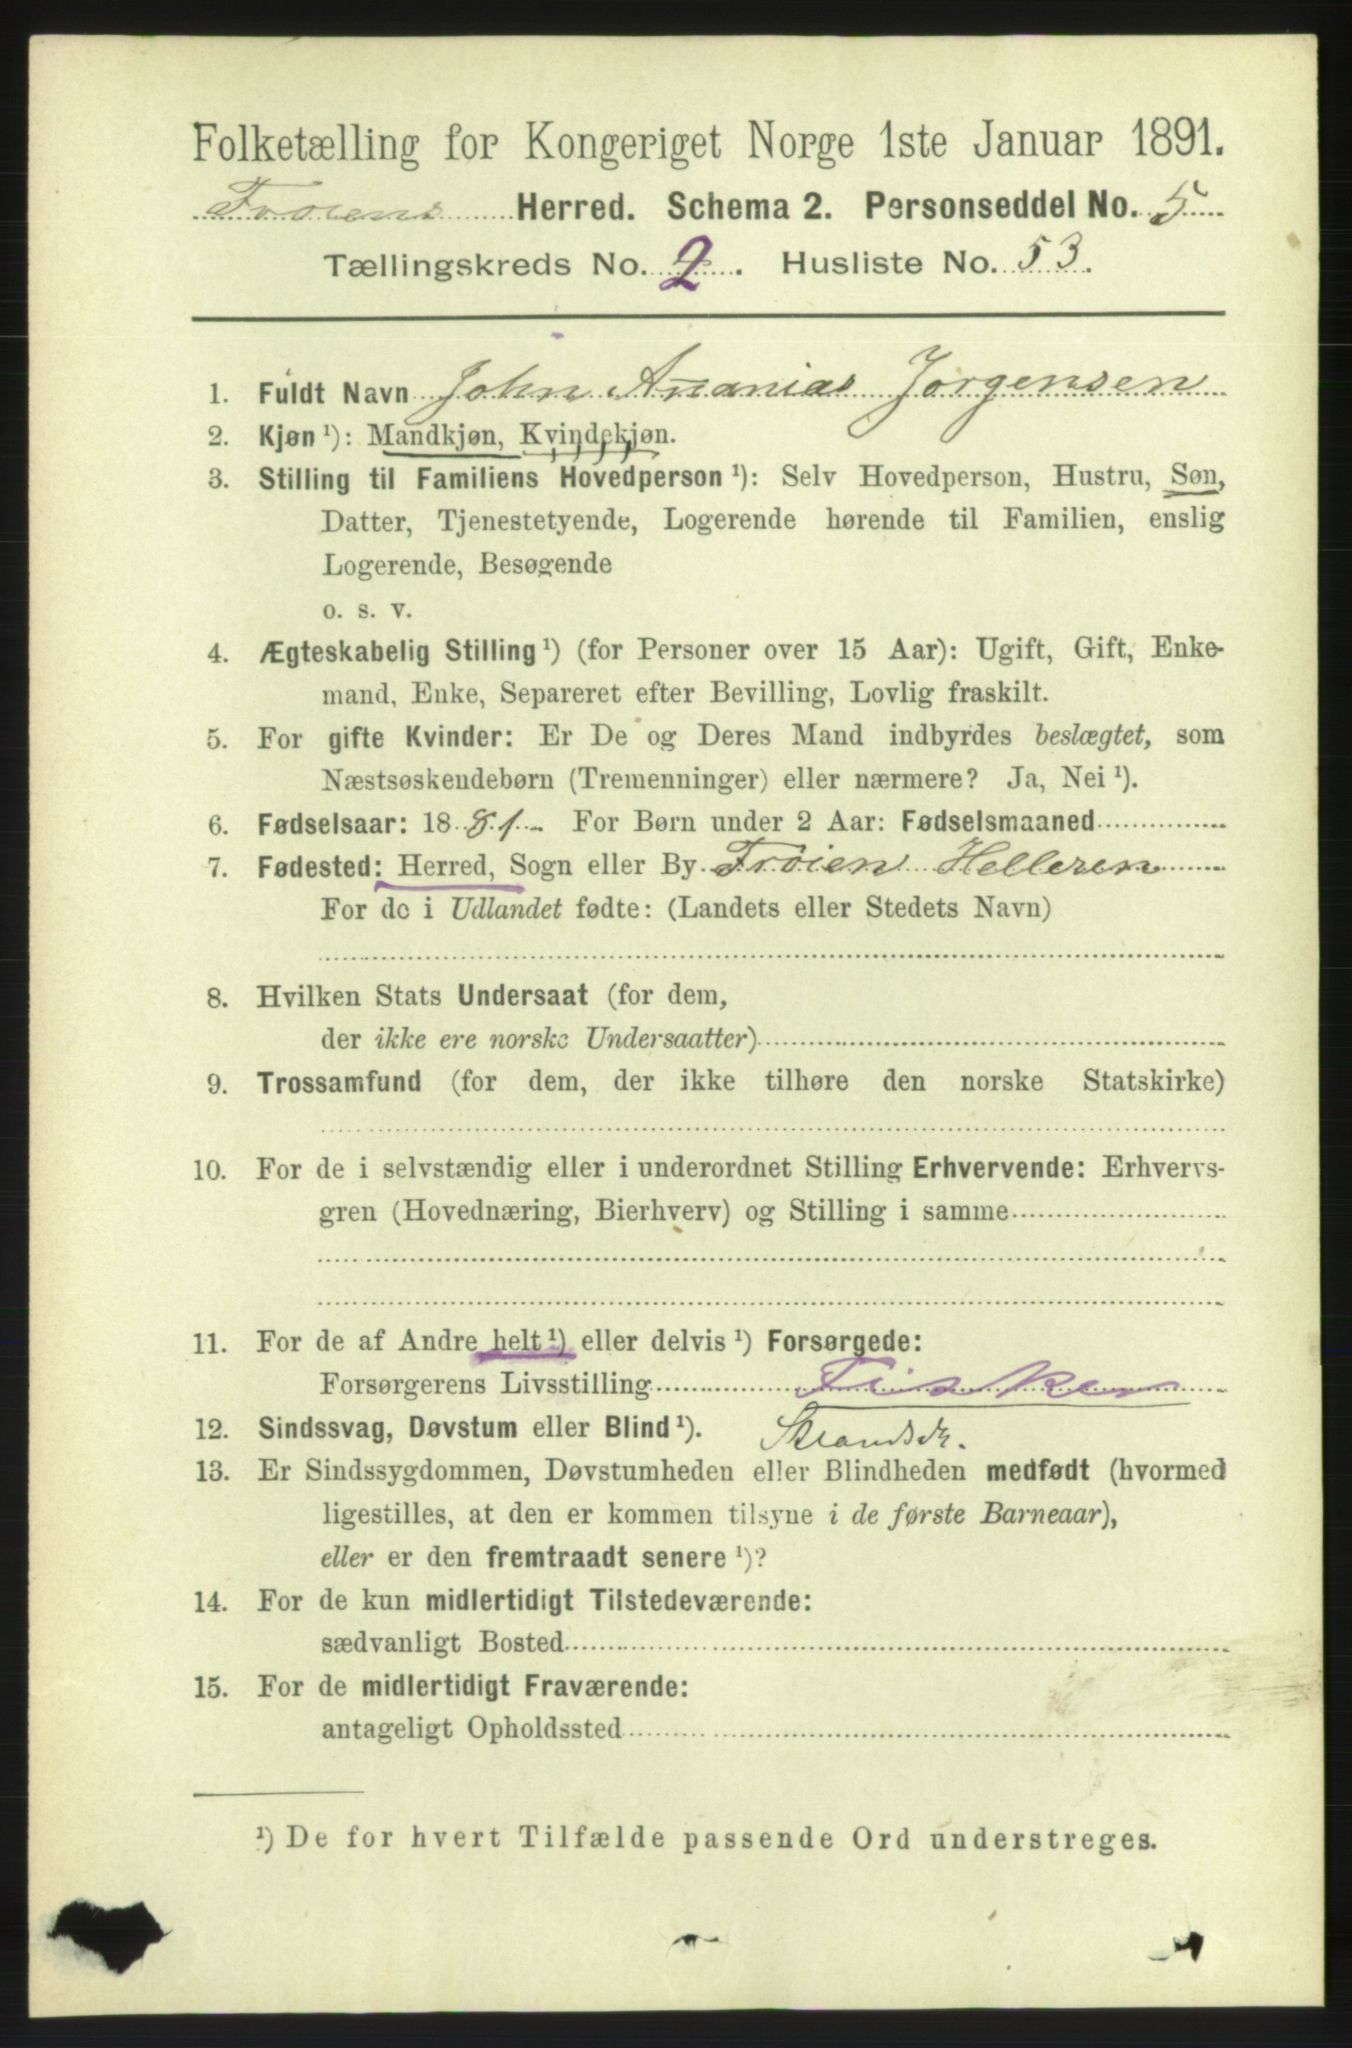 Folketælling for Kongeriget Norge 1ste Januar 1891.
Frøiens Herred. Schema 2. Personseddel No. 5
Tællingskreds No. 2. Husliste No. 53.
1. Fuldt Navn John Ananias Jørgensen
2. Kjøn ¹): Mandkjøn, Kvindekjøn.
3. Stilling til Familiens Hovedperson ¹): Selv Hovedperson, Hustru, Søn,
Datter, Tjenestetyende, Logerende hørende til Familien, enslig
Logerende, Besøgende
o. s. v.
4. Ægteskabelig Stilling ¹) (for Personer over 15 Aar): Ugift, Gift, Enke-
mand, Enke, Separeret efter Bevilling, Lovlig fraskilt.
5. For gifte Kvinder: Er De og Deres Mand indbyrdes beslægtet, som
Næstsøskendebørn (Tremenninger) eller nærmere? Ja, Nei ¹).
6. Fødselsaar: 1881. For Børn under 2 Aar: Fødselsmaaned
7. Fødested: Herred, Sogn eller By Frøien Helleren
For de i Udlandet fødte: (Landets eller Stedets Navn)
8. Hvilken Stats Undersaat (for dem,
der ikke ere norske Undersaatter)
9. Trossamfund (for dem, der ikke tilhøre den norske Statskirke)
10. For de i selvstændig eller i underordnet Stilling Erhvervende: Erhvervs-
gren (Hovednæring, Bierhverv) og Stilling i samme
11. For de af Andre helt ¹) eller delvis ¹) Forsørgede:
Forsørgerens Livsstilling Fisker
12. Sindssvag, Døvstum eller Blind ¹).
13. Er Sindssygdommen, Døvstumheden eller Blindheden medfødt (hvormed
ligestilles, at den er kommen tilsyne i de første Barneaar),
eller er den fremtraadt senere ¹)?
14. For de kun midlertidigt Tilstedeværende:
sædvanligt Bosted
15. For de midlertidigt Fraværende:
antageligt Opholdssted
¹) De for hvert Tilfælde passende Ord understreges.